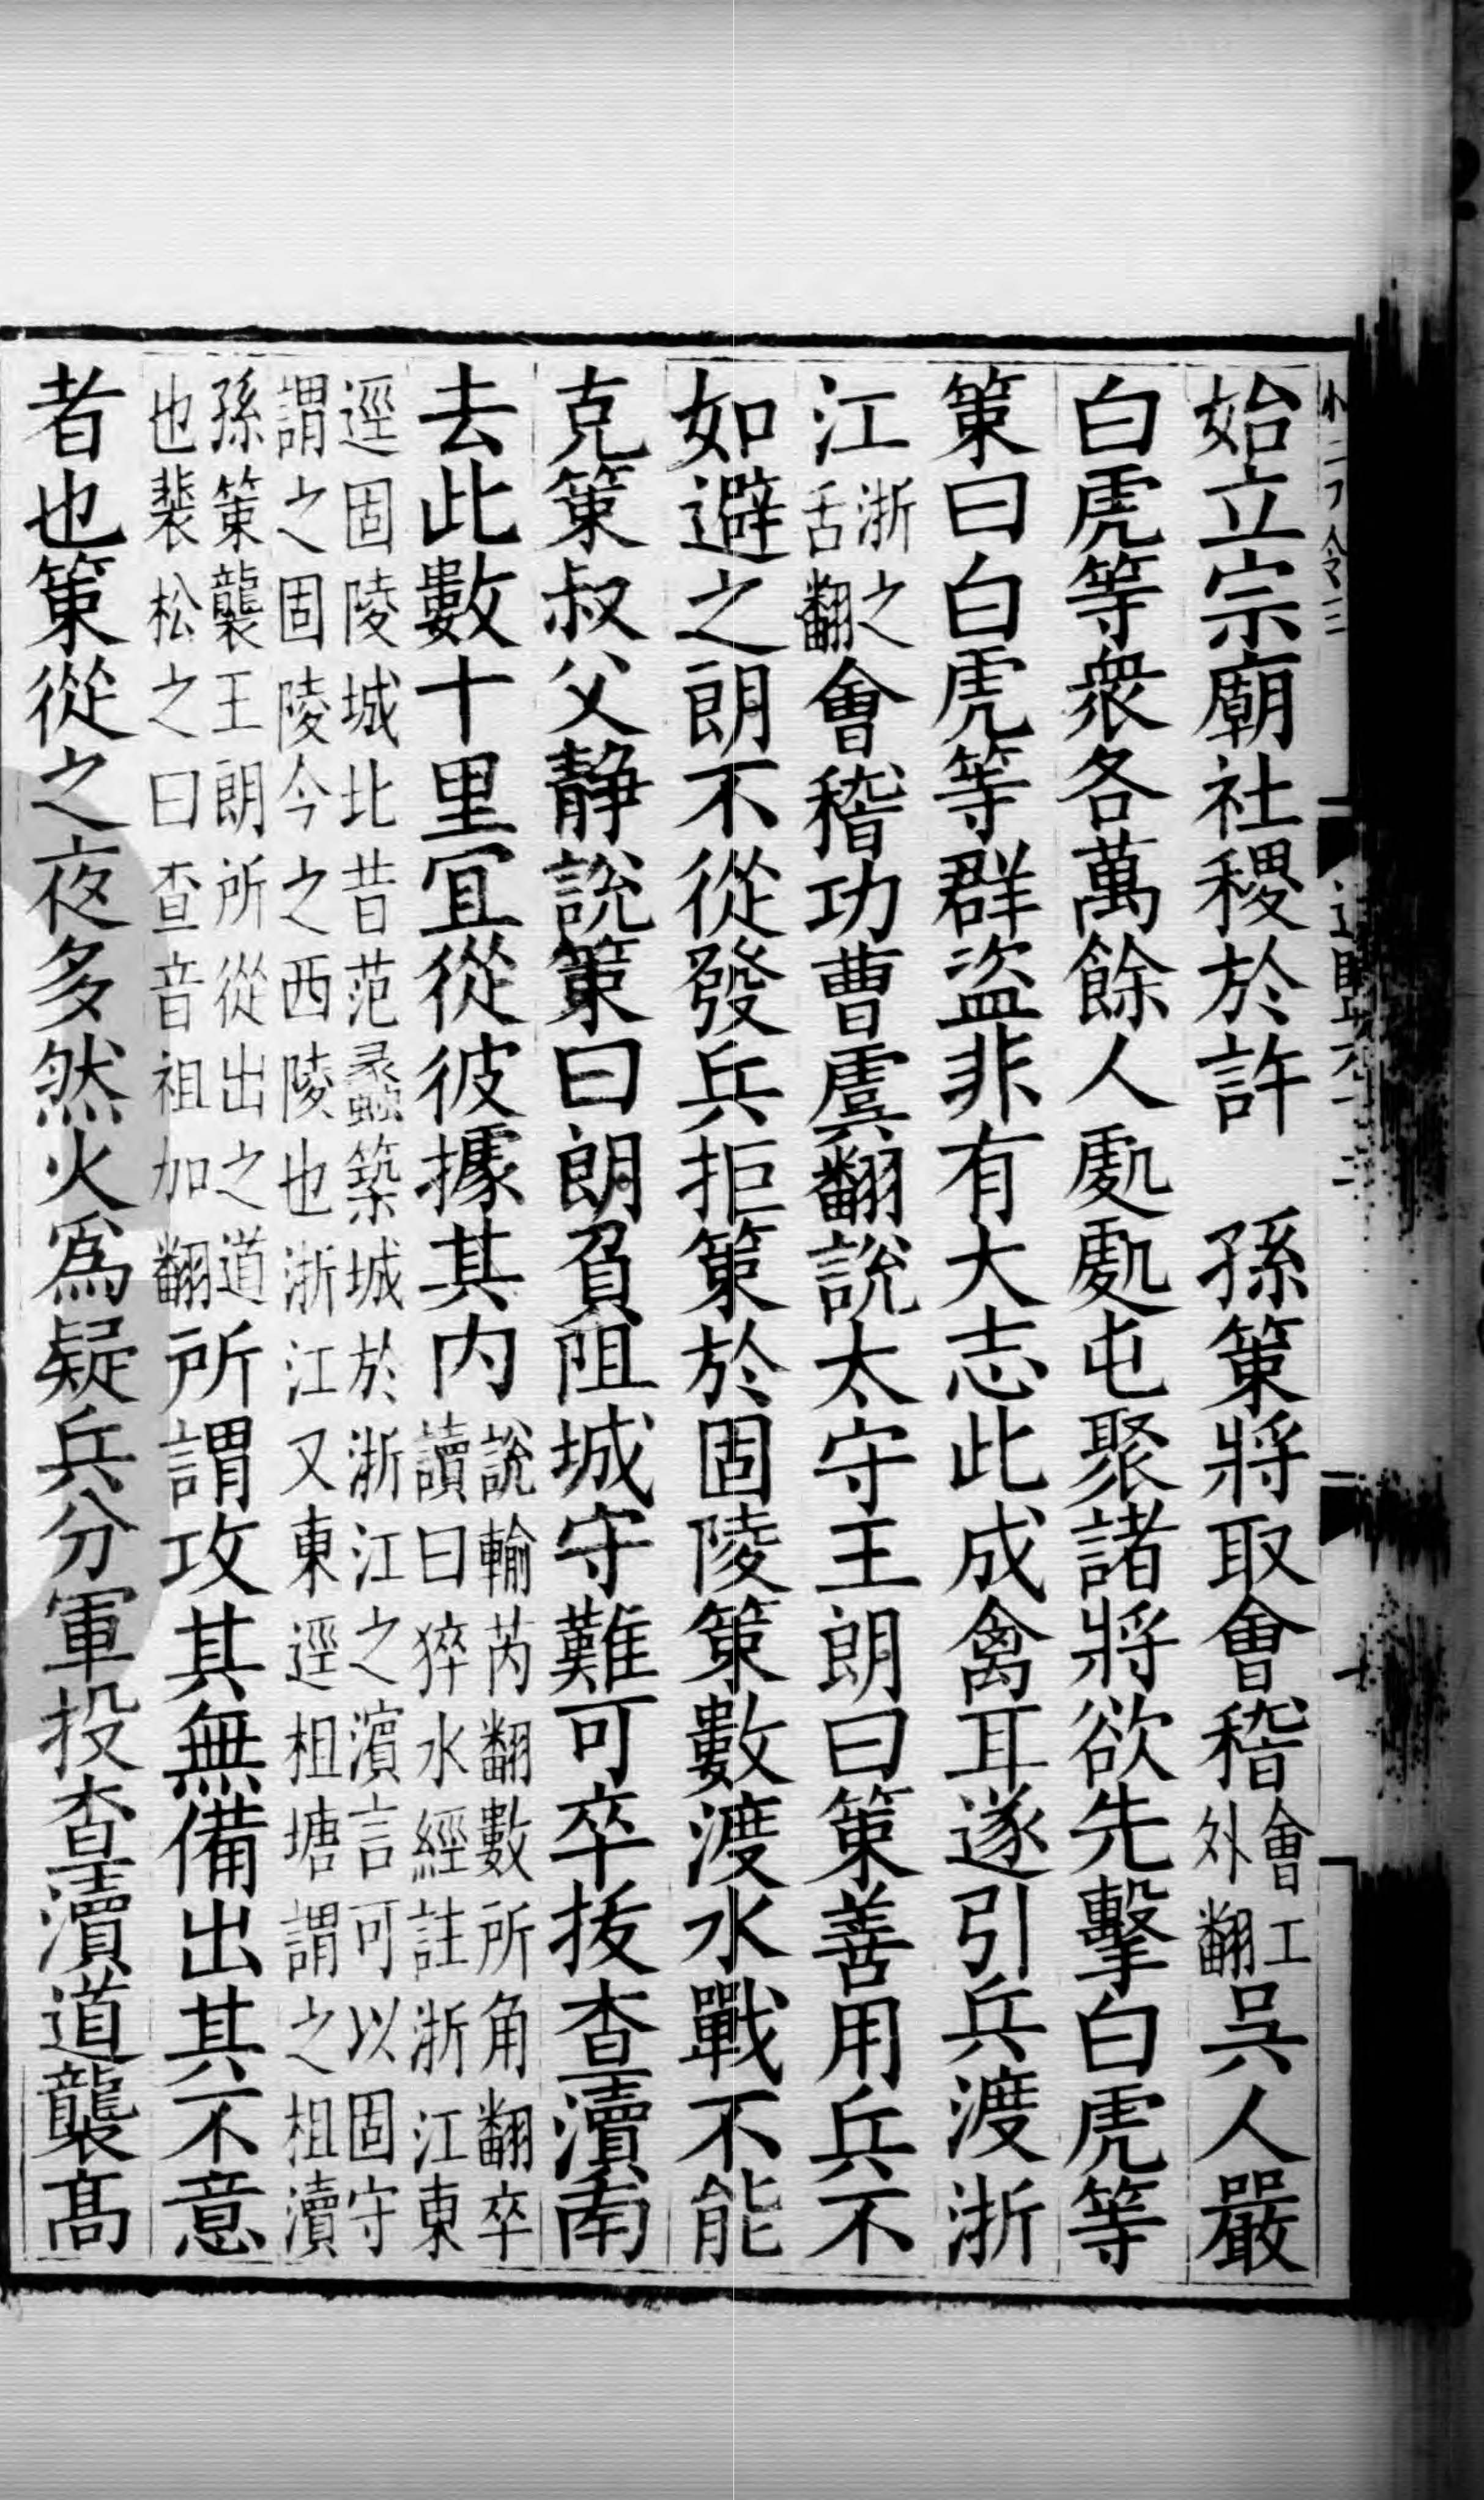 始立宗廟社稷於許　孫策將取會稽會工外翻吳人嚴
白虎等衆各萬餘人處處屯聚諸將欲先擊白虎等
策曰白虎等群盜非有大志此成禽耳遂引兵渡浙
江浙之舌翻會稽功曹虞翻說太守王朗曰策善用兵不
如避之朗不從發兵拒策於固陵策數渡水戰不能
克策叔父靜說策曰朗負阻城守難可卒拔查瀆南
去此數十里宜從彼據其內說輸芮翻數所角翻卒讀曰猝水經註浙江東
逕固陵城北昔范蠡築城於浙江之濱言可以固守
謂之固陵今之西陵也浙江又東逕柤塘謂之柤瀆
孫策襲王朗所從出之道也裴松之曰查音祖加翻所謂攻其無備出其不意
者也策從之夜多然火爲疑兵分軍投查瀆道襲高